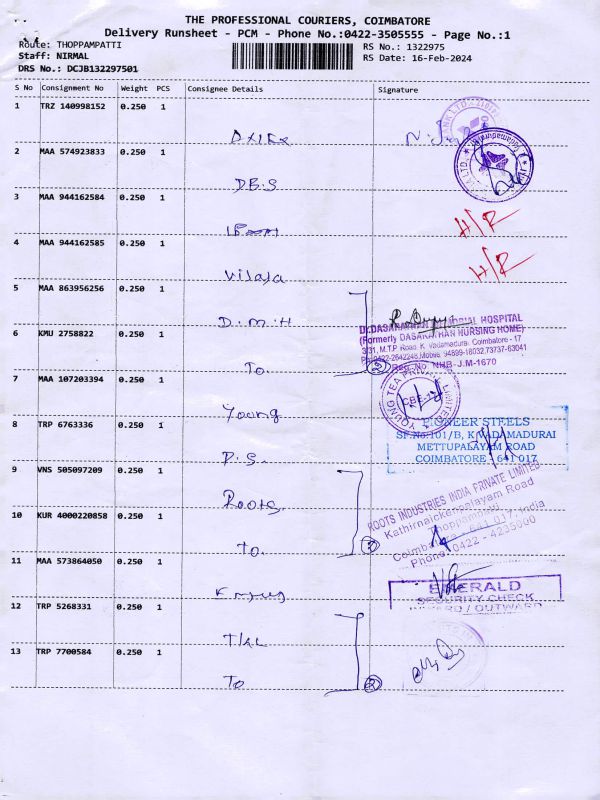 THE PROFESSIONAL COURIERS, COIMBATORE
Delivery Runsheet - PCM - Phone No.:0422-3505555 - Page No.:1
Route: THOPPAMPATTI
Staff: NIRMAL
DRS No.: DCJB132297501
RS No.: 1322975
RS Date: 16-Feb-2024
S No Consignment No Weight PCS Consignee Details Signature
1 TRZ 140998152 0.250 1
2 MAA 574923833 0.250 1
DB.S
3 MAA 944162584 0.250 1
H/R
4 MAA 944162585 0.250 1
Vilaja
H/R
5 MAA 863956256 0.250 1
D.M.H
Dr.DASARATHAN MEMORIAL HOSPITAL
(Formerly DASARATHAN NURSING HOME)
3/31, M.T.P. Road, K. Vadamadurai, Coimbatore - 17
Ph:0422-2642248, Mobile: 94899-18032, 73737-63041
Reg.No. NHB-J.M-1670
6 KMU 2758822 0.250 1
To. 2
7 MAA 107203394 0.250 1
Young
YOUNG TEA PRIVATE LIMITED
8 TRP 6763336 0.250 1
P.S.
PIONEER STEELS
SF.No:101/B, K.VADAMADURAI
METTUPALAYAM ROAD
COIMBATORE - 641 017
9 VNS 505097209 0.250 1
Roots
ROOTS INDUSTRIES INDIA PRIVATE LIMITED
Kathirnaickenpalayam Road
Thoppampatti
Coimbatore - 641 017, India
Phone: 0422 - 4235000
10 KUR 4000220858 0.250 1
To. 2
11 MAA 573864050 0.250 1
EMERALD
SECURITY CHECK
INWARD / OUTWARD
12 TRP 5268331 0.250 1
13 TRP 7700584 0.250 1
To 2